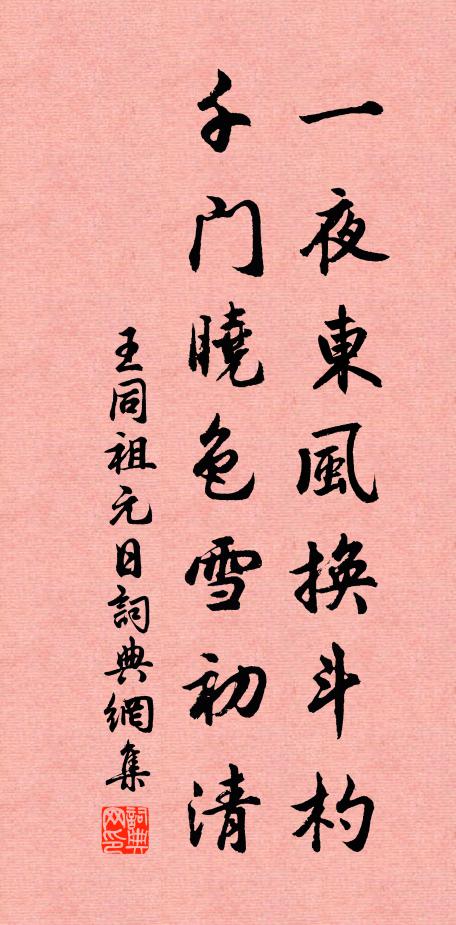 一夜東風換斗杓
千門曉色雪初清
王同祖元日詞典網集
詞典
网印